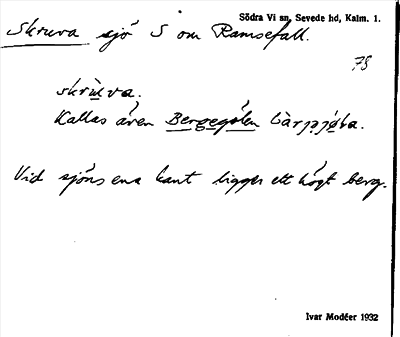 Södra Vi sn, Sevede hd, Kalm. 1.
Skruva sjö S om Ramsefall.
78
skrùva.
Kallas även Bergegölen
Vid sjöns ena kant ligger ett högt berg.
Ivar Modéer 1932